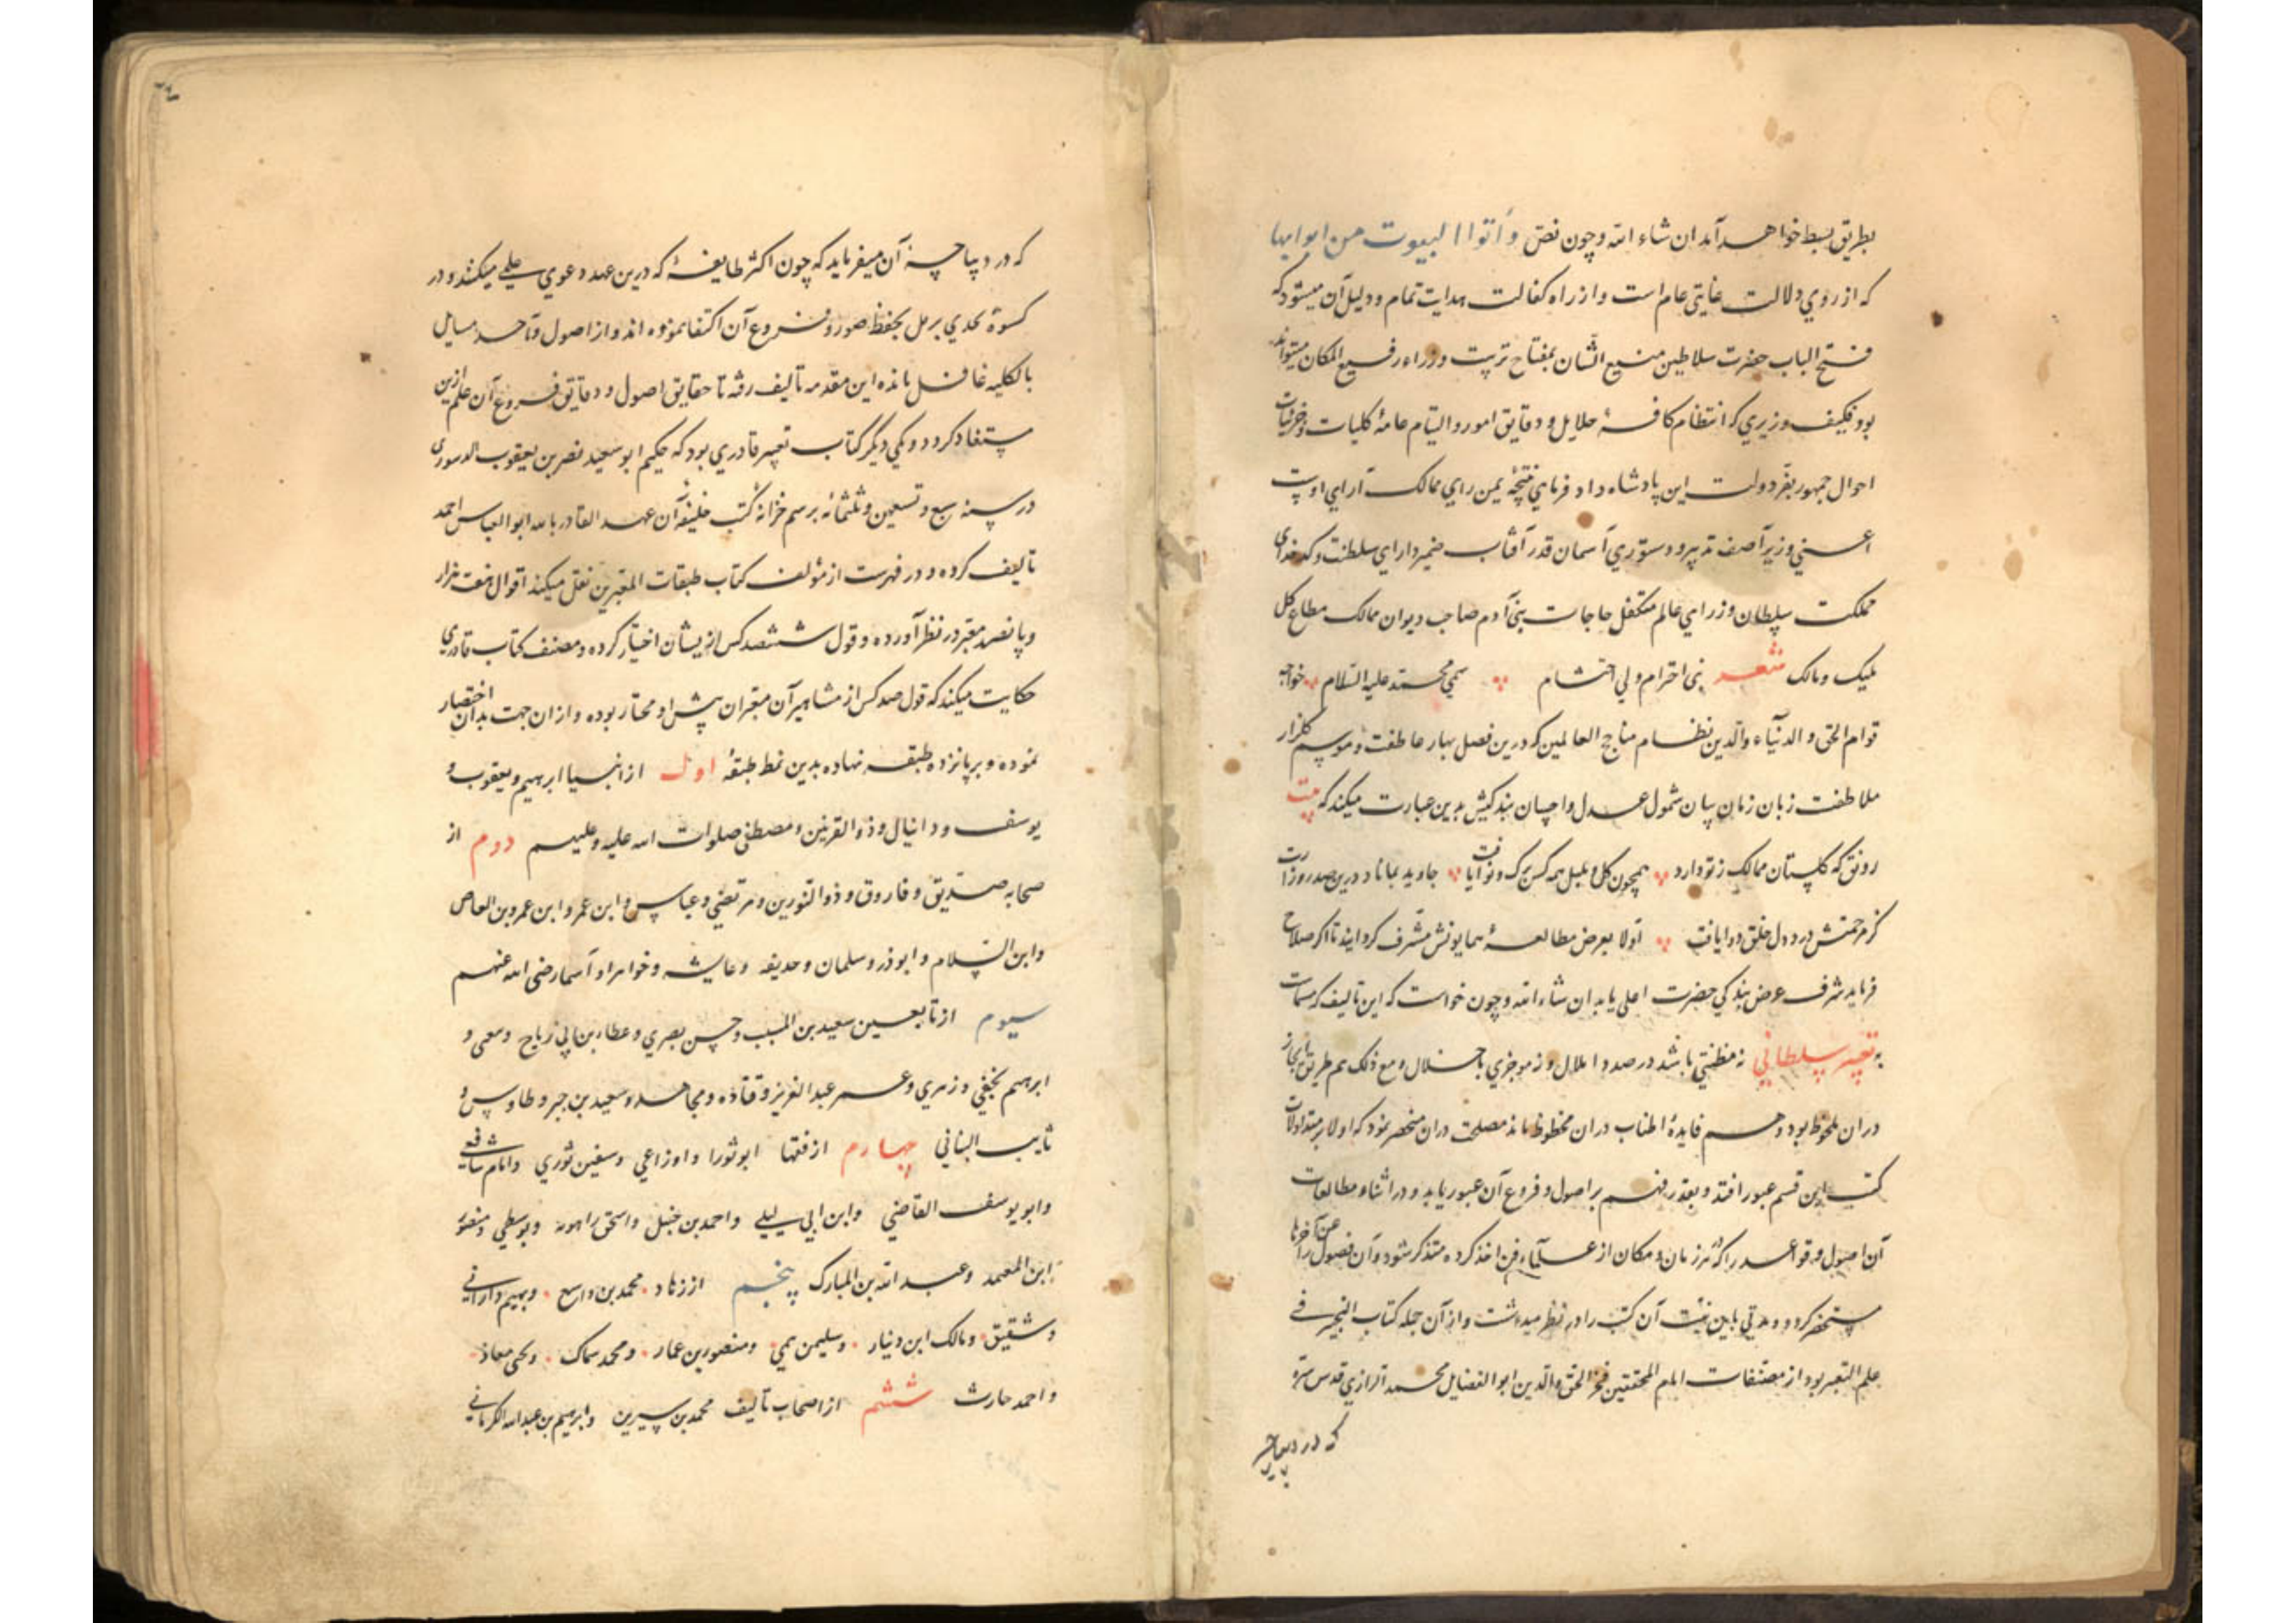 بطریق بسط خواهد آمد ان شاء الله و چون نص وأتوا البیوت من ابوابها
که از روی دلالت غایتی عام است و از راه کفالت هدایت تمام و دلیل آن میشود که
فتح الباب حضرت سلاطین منیع الشان بمفتاح تربیت وزراء رفیع المکان میتواند
بود فکیف وزیری که انتظام کافهٔ جلایل و دقایق امور و التیام عامهٔ کلیات و جزئیات
احوال جمهور بفر دولت این پادشاه داد فرمای نتیجهٔ یمن رای ممالک آرای اوست
اعنی وزیر آصف تدبیر و دستوری آسمان قدر آفتاب ضمیر دارای سلطنت و کدخدای
مملکت سلطان وزرای عالم متکفل حاجات بنی آدم صاحب دیوان ممالک مطاع کل
ملیک و مالک شعر نبی احترام ولی احتشام سمی محمد علیه السلام خواجه
قوام الحق و الدنیاء والدین نظام مناجح العالمین که درین فصل بهار عاطفت و موسم گلزار
ملاطفت زبان زمان بیان شمول عدل و احسان بندگیش بدین عبارت میکند که بیت
رونق که گلستان ممالک ز تو دارد همچون گل و بلبل همه کس برگ و نوا یافت جاوید بماناد درین صدر وزارت
کز مرحمتش درد دل خلق دوا یافت اولا بعرض مطالعهٔ همایونش مشرف گردانید تا اگر صلاح
فرماید شرف عرض بندگی حضرت اعلی یابد ان شاء الله و چون خواست که این تالیف که مسمات
به تعبیر سلطانی نه مظنتی باشد در صدد املال و نه موجزی باخلال و مع ذلک هم طریق ایجاز
در آن ملحوظ بود و هم فایدهٔ اطناب در آن محظوظ ماند مصلحت در آن منحصر نمود که اولا بر متداولات
کتب این قسم عبور افتد و بقدر فهم بر اصول و فروع آن عبور یابد و در اثناء مطالعات
آن اصول و قواعد را که در هر زمان و مکان از علماء فن اخذ کرده متذکر شود و آن فصول را عن آخرها
مستحضر گردد و مدتی باین نیت آن کتب را در نظر میداشت و از آن جمله کتاب التحبیر فی
علم التعبیر بود از مصنفات امام المحققین فخر الحق والدین ابو الفضایل محمد الرازی قدس سره
که در دیباچه
که در دیباچهٔ آن میفرماید که چون اکثر طایفهٔ که درین عهد دعوی علمی میکنند و در
کسوة تحدی بر مل بحفظ صور و فروع آن اکتفا نموده اند و از اصول و تأحد مسایل
بالکلیه غافل مانده این مقدمه تألیف رفته تا حقایق اصول و دقایق فروع آن علم ازین
مستفاد گردد و یکی دیگر کتاب تعبیر قادری بود که حکیم ابو سعید نصر بن یعقوب الدینوری
در سنه سبع و تسعین و ثلثمائه برسم خزانهٔ کتب خلیفهٔ آن عهد القادر بالله ابو العباس احمد
تألیف کرده و در فهرست از مؤلف کتاب طبقات المعبرین نقل میکند اقوال هفت هزار
و پانصد معبر در نظر آورده و قول ششصد کس از یشان اختیار کرده و مصنف کتاب قادری
حکایت میکند که قول صد کس از مشاهیر آن معبران پیش او مختار بوده و از آن جهت بدان اختصار
نموده و بر پانزده طبقه نهاده بدین نمط طبقهٔ اول از انبیا ابرهیم و یعقوب و
یوسف و دانیال و ذو القرنین و مصطفی صلوات الله علیه و علیهم دوم از
صحابه صدیق و فاروق و ذو النورین و مرتضی و عباس و ابن عمر و ابن عمرو بن العاص
وابن السلام و ابوذر و سلمان و حذیفه و عایشه و خواهر او اسما رضی الله عنهم
سیوم از تابعین سعید بن المسیب و حسن بصری و عطاء بن ابی رباح و معمی و
ابرهیم نخعی و زهری و عمر عبد العزیز و قتاده و مجاهد و سعید بن جبیر و طاوس و
ثابت البنانی چهارم از فقها ابو ثورا و اوزاعی و سفین ثوری و امام شافعی
و ابو یوسف القاضی و ابن ابی لیلی و احمد بن حنبل و اسحق راهویه و بویطی و منصور
ابن المعتمد و عبد الله بن المبارک پنجم از زهاد محمد بن واسع و بهیم دارانی
و شقیق و مالک ابن دینار و سلیمن تیمی و منصور بن عمار و محمد سماک و یحیی معاذ
و احمد حارث ششم از اصحاب تألیف محمد بن سیرین و ابرهیم بن عبد الله الکرمانی